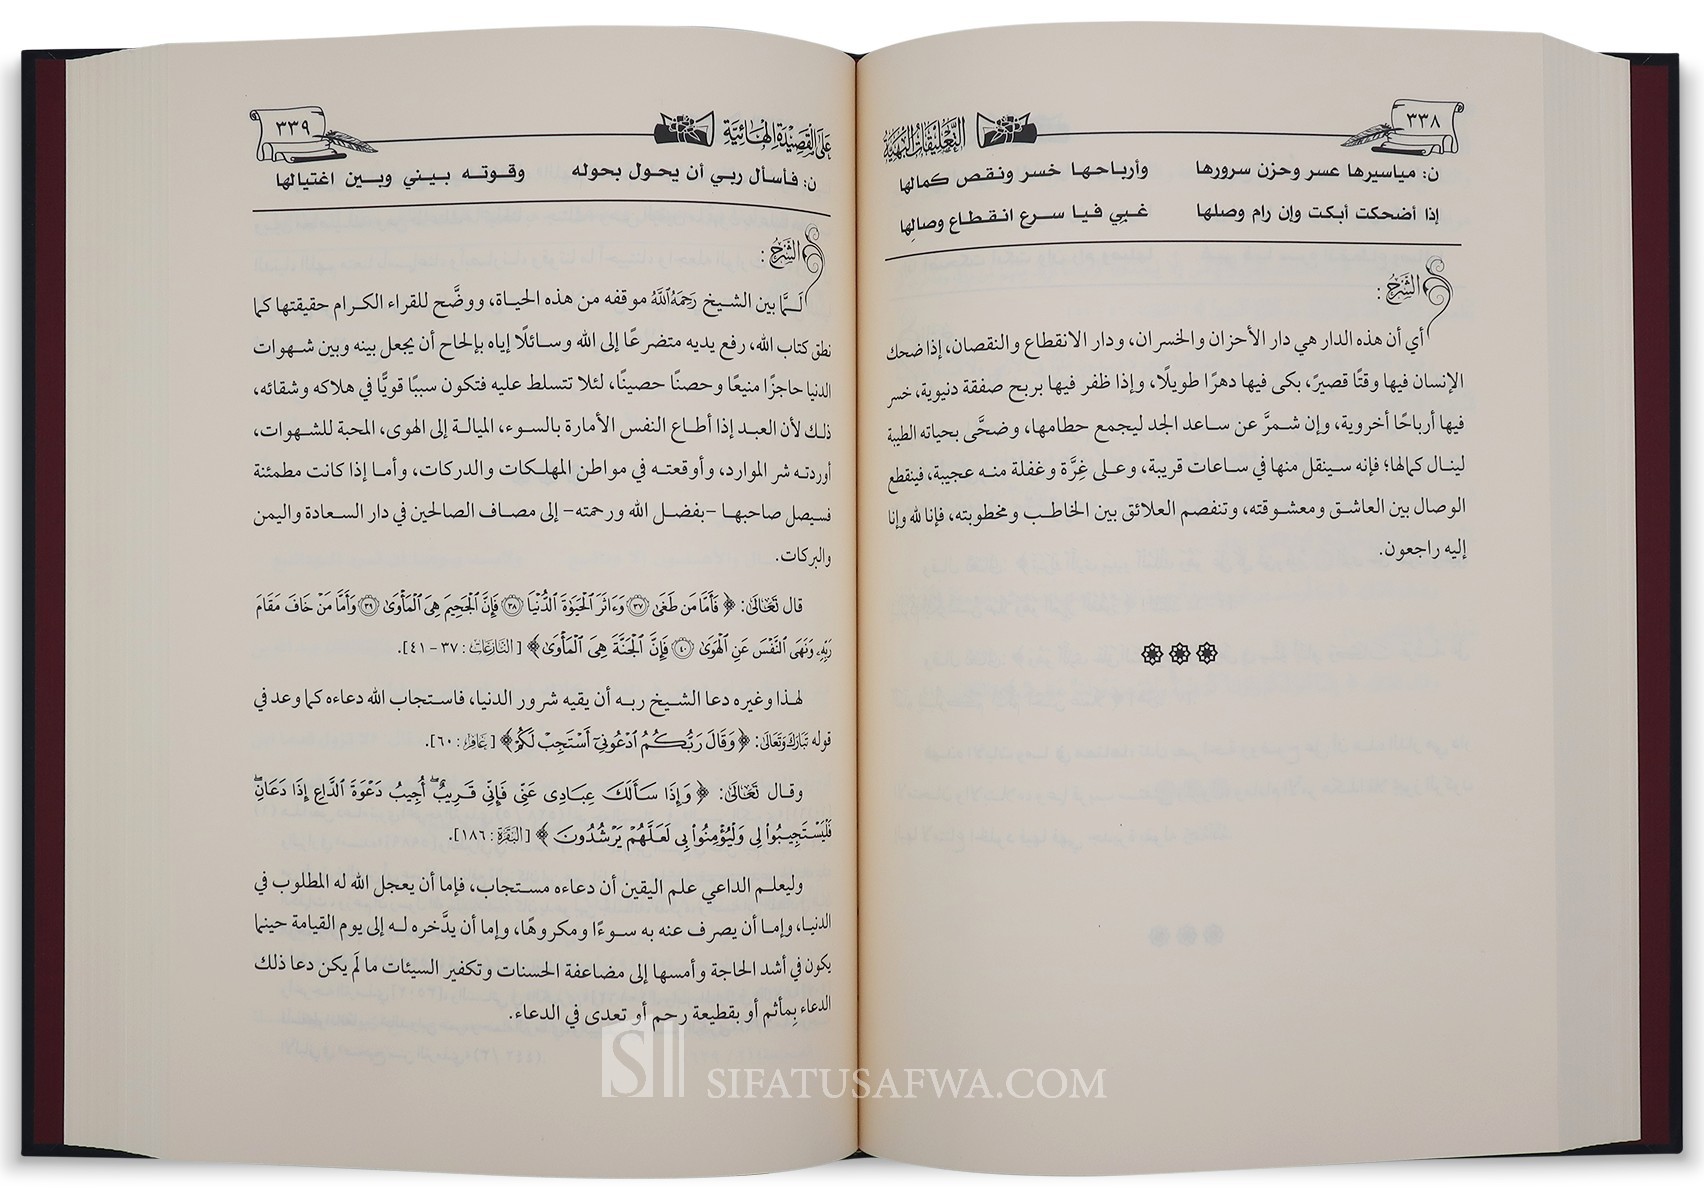 ٣٣٨
التعليقات البهية
ن: مياسيرها عسر وحزن سرورها وأرباحها خسر ونقص كمالها
إذا أضحكت أبكت وإن رام وصلها غبي فيا سرع انقطاع وصالِها
الشرح :
أي أن هذه الدار هي دار الأحزان والخسران، ودار الانقطاع والنقصان، إذا ضحك
الإنسان فيها وقتًا قصيرً، بكى فيها دهرًا طويلًا، وإذا ظفر فيها بربح صفقة دنيوية، خسر
فيها أرباحًا أخروية، وإن شمرَّ عن ساعد الجد ليجمع حطامها، وضحَّى بحياته الطيبة
لينال كمالها؛ فإنه سينقل منها في ساعات قريبة، وعلى غِرَّة وغفلة منه عجيبة، فينقطع
الوصال بين العاشق ومعشوقته، وتنفصم العلائق بين الخاطب ومخطوبته، فإنا لله وإنا
إليه راجعون.
على القصيدة الهائية
٣٣٩
ن: فأسأل ربي أن يحول بحوله وقوته بيني وبين اغتيالها
الشرح :
لَـمَّا بين الشيخ رَحِمَهُ ٱللَّهُ موقفه من هذه الحياة، ووضَّح للقراء الكرام حقيقتها كما
نطق كتاب الله، رفع يديه متضرعًا إلى الله وسائلًا إياه بإلحاح أن يجعل بينه وبين شهوات
الدنيا حاجزًا منيعًا وحصنًا حصينًا، لئلا تتسلط عليه فتكون سببًا قويًّا في هلاكه وشقائه،
ذلك لأن العبد إذا أطاع النفس الأمارة بالسوء، الميالة إلى الهوى، المحبة للشهوات،
أوردته شر الموارد، وأوقعته في مواطن المهلكات والدركات، وأما إذا كانت مطمئنة
فسيصل صاحبها -بفضل الله ورحمته- إلى مصاف الصالحين في دار السعادة واليمن
والبركات.
قال تَعَالَىٰ: ﴿ فَأَمَّا مَن طَغَىٰ ٣٧ وَءَاثَرَ ٱلْحَيَوٰةَ ٱلدُّنْيَا ٣٨ فَإِنَّ ٱلْجَحِيمَ هِىَ ٱلْمَأْوَىٰ ٣٩ وَأَمَّا مَنْ خَافَ مَقَامَ
رَبِّهِۦ وَنَهَى ٱلنَّفْسَ عَنِ ٱلْهَوَىٰ ٤٠ فَإِنَّ ٱلْجَنَّةَ هِىَ ٱلْمَأْوَىٰ ﴾ [النازعات: ٣٧ - ٤١].
لهذا وغيره دعا الشيخ ربه أن يقيه شرور الدنيا، فاستجاب الله دعاءه كما وعد في
قوله تَبَارَكَ وَتَعَالَىٰ: ﴿ وَقَالَ رَبُّكُمُ ٱدْعُونِىٓ أَسْتَجِبْ لَكُمْ ﴾ [غافر: ٦٠].
وقال تَعَالَىٰ: ﴿ وَإِذَا سَأَلَكَ عِبَادِى عَنِّى فَإِنِّى قَرِيبٌ ۖ أُجِيبُ دَعْوَةَ ٱلدَّاعِ إِذَا دَعَانِ ۖ
فَلْيَسْتَجِيبُوا۟ لِى وَلْيُؤْمِنُوا۟ بِى لَعَلَّهُمْ يَرْشُدُونَ ﴾ [البقرة: ١٨٦].
وليعلم الداعي علم اليقين أن دعاءه مستجاب، فإما أن يعجل الله له المطلوب في
الدنيا، وإما أن يصرف عنه به سوءًا ومكروهًا، وإما أن يدَّخره له إلى يوم القيامة حينما
يكون في أشد الحاجة وأمسها إلى مضاعفة الحسنات وتكفير السيئات ما لَم يكن دعا ذلك
الدعاء بِمأثم أو بقطيعة رحم أو تعدى في الدعاء.
SIFATUSAFWA.COM